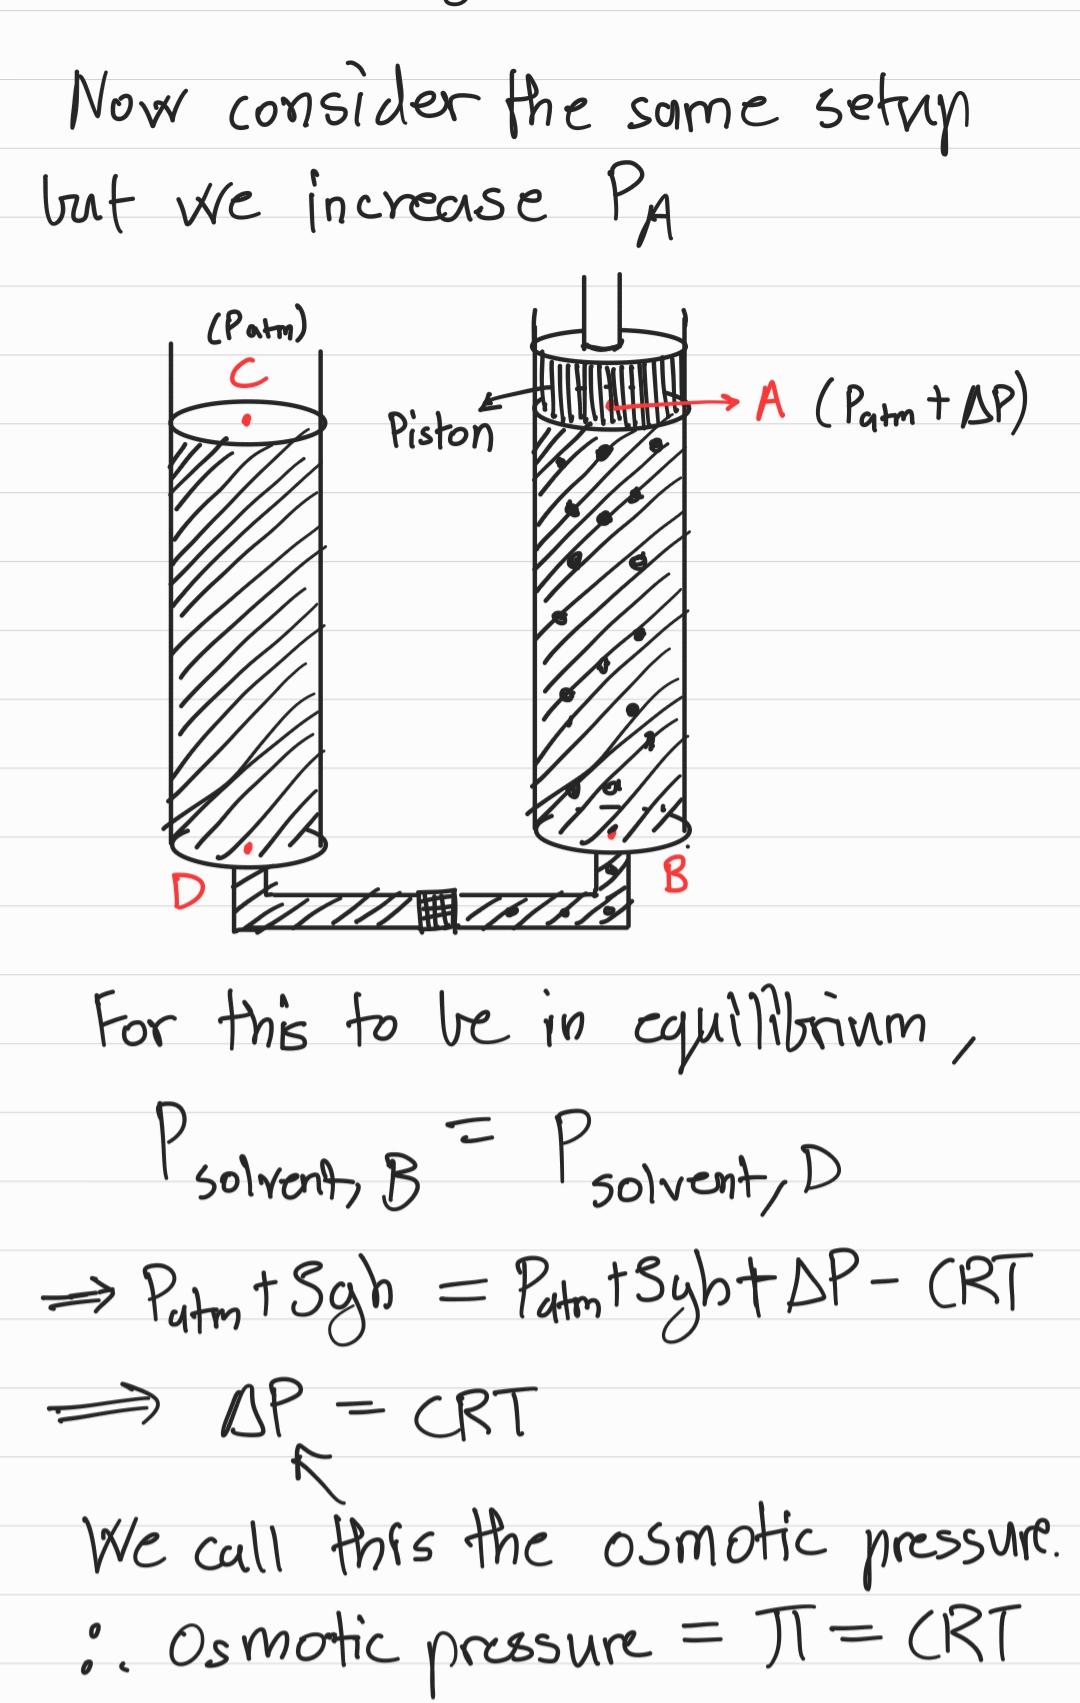 Now consider the same setup
but we increase P_A
(Patm)
C
Piston
A (Patm + ΔP)
D
B
For this to be in equilibrium,
P_solvent, B = P_solvent, D
⇒ Patm + Sgh = Patm + Sgh + ΔP - CRT
⇒ ΔP = CRT
We call this the osmotic pressure.
∴ Osmotic pressure = π = CRT